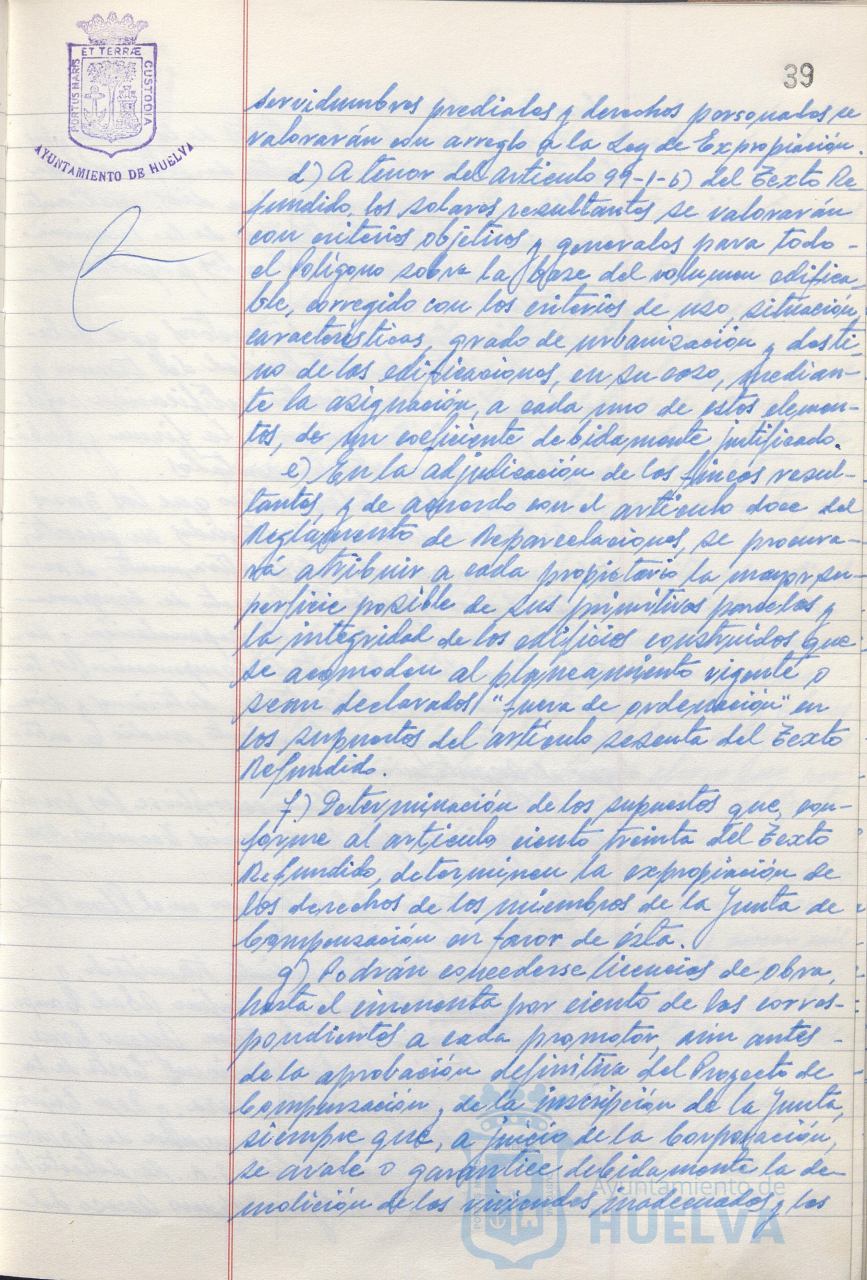 39
ET TERRÆ
PORTUS MARIS
CUSTODIA
AYUNTAMIENTO DE HUELVA
servidumbres prediales y derechos personales se
valorarán con arreglo a la Ley de Expropiación.
d) A tenor del artículo 99-1-b) del Texto Re
fundido, los solares resultantes se valorarán
con criterios objetivos y generales para todo-
el Polígono sobre la base del volumen edifica-
ble, corregido con los criterios de uso, situación,
características, grado de urbanización y desti-
no de las edificaciones, en su caso, median-
te la asignación, a cada uno de estos elemen-
tos, de un coeficiente debidamente justificado.
e) En la adjudicación de las fincas resul-
tantes, y de acuerdo con el artículo doce del
Reglamento de Reparcelaciones, se procura-
rá atribuir a cada propietario la mayor su-
perficie posible de sus primitivas parcelas y
la integridad de los edificios construidos que-
se acomoden al planeamiento vigente o
sean declarados "fuera de ordenación" en
los supuestos del artículo sesenta del Texto
Refundido.
f) Determinación de los supuestos que, con-
forme al artículo ciento treinta del Texto
Refundido, determinen la expropiación de
los derechos de los miembros de la Junta de
Compensación en favor de ésta.
g) Podrán concederse licencias de obra,
hasta el cincuenta por ciento de las corres-
pondientes a cada promotor, aún antes-
de la aprobación definitiva del Proyecto de
Compensación y de la inscripción de la Junta,
siempre que, a juicio de la Corporación,
se avale o garantice debidamente la de
molición de las viviendas inadecuadas y los
Ayuntamiento de
HUELVA